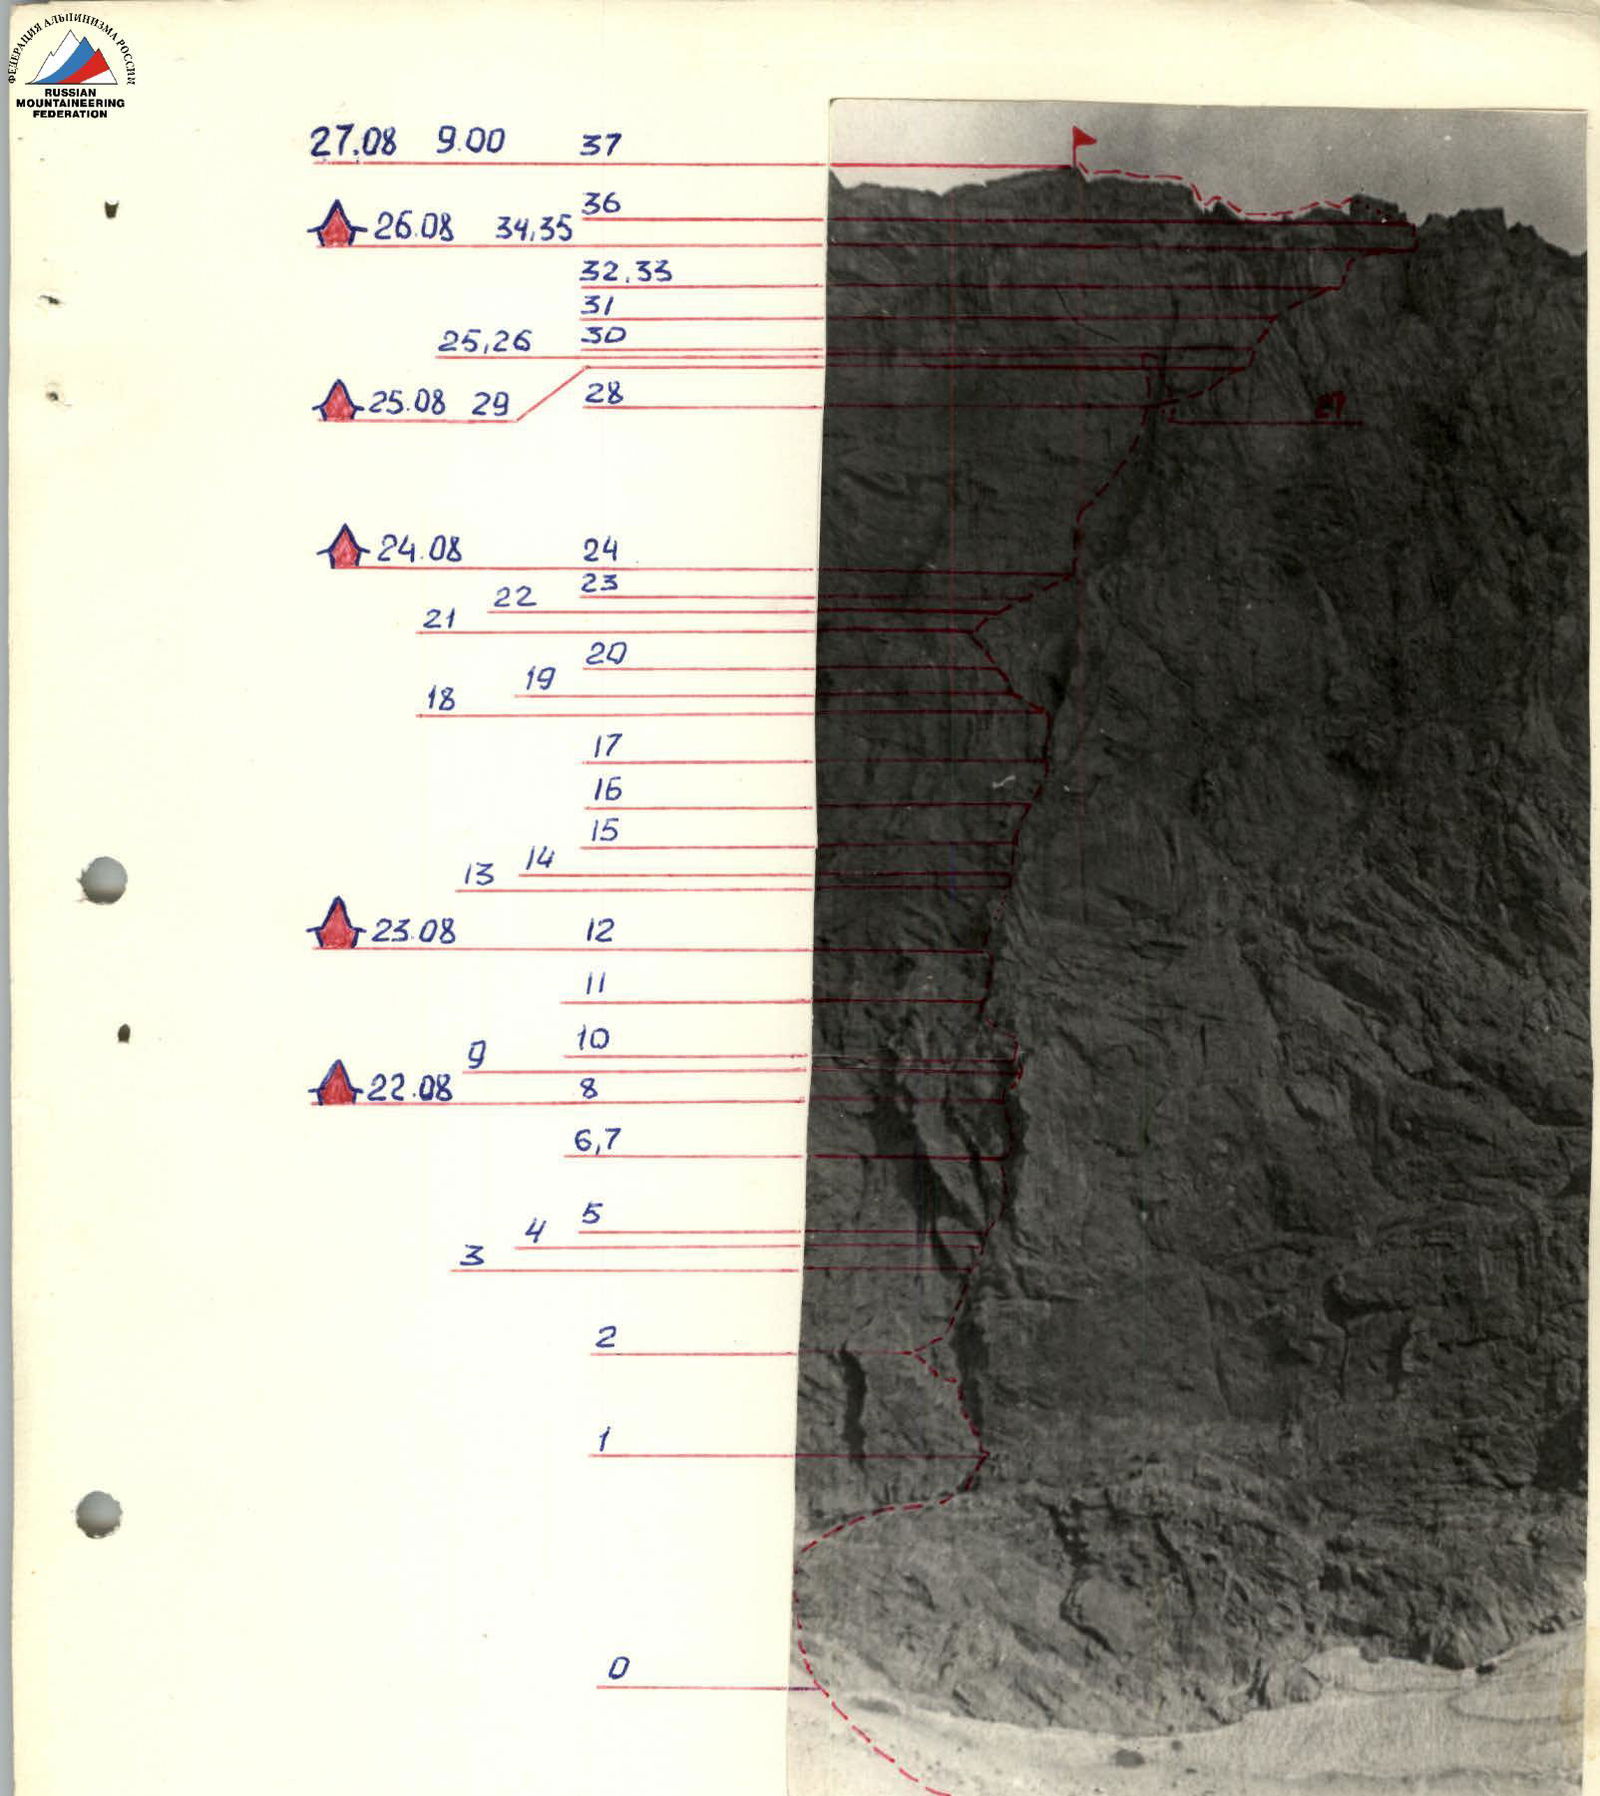 ФЕДЕРАЦИЯ АЛЬПИНИЗМА РОССИИ
RUSSIAN
MOUNTAINEERING
FEDERATION
27.08 9.00 37
36
26.08 34,35
32,33
31
25,26 30
25.08 29 28
27
24.08 24
23
22
21
20
19
18
17
16
15
14
13
23.08 12
11
10
9
22.08 8
6,7
5
4
3
2
1
0